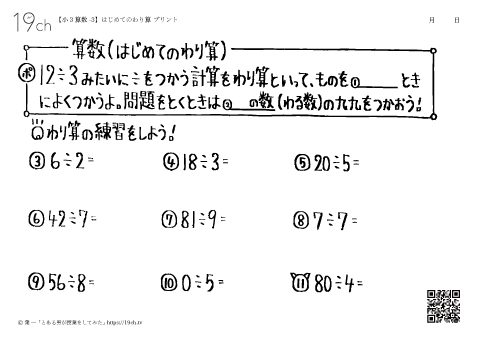 19ch 【小3算数-3】はじめてのわり算 プリント 月 日
算数(はじめてのわり算)
ポ 12÷3みたいに÷をつかう計算をわり算といって、ものを①＿＿＿とき
によくつかうよ。問題をとくときは②＿の数(わる数)の九九をつかおう!
わり算の練習をしよう!
③ 6÷2= ④ 18÷3= ⑤ 20÷5=
⑥ 42÷7= ⑦ 81÷9= ⑧ 7÷7=
⑨ 56÷8= ⑩ 0÷5= ⑪ 80÷4=
© 葉一「とある男が授業をしてみた」https://19ch.tv